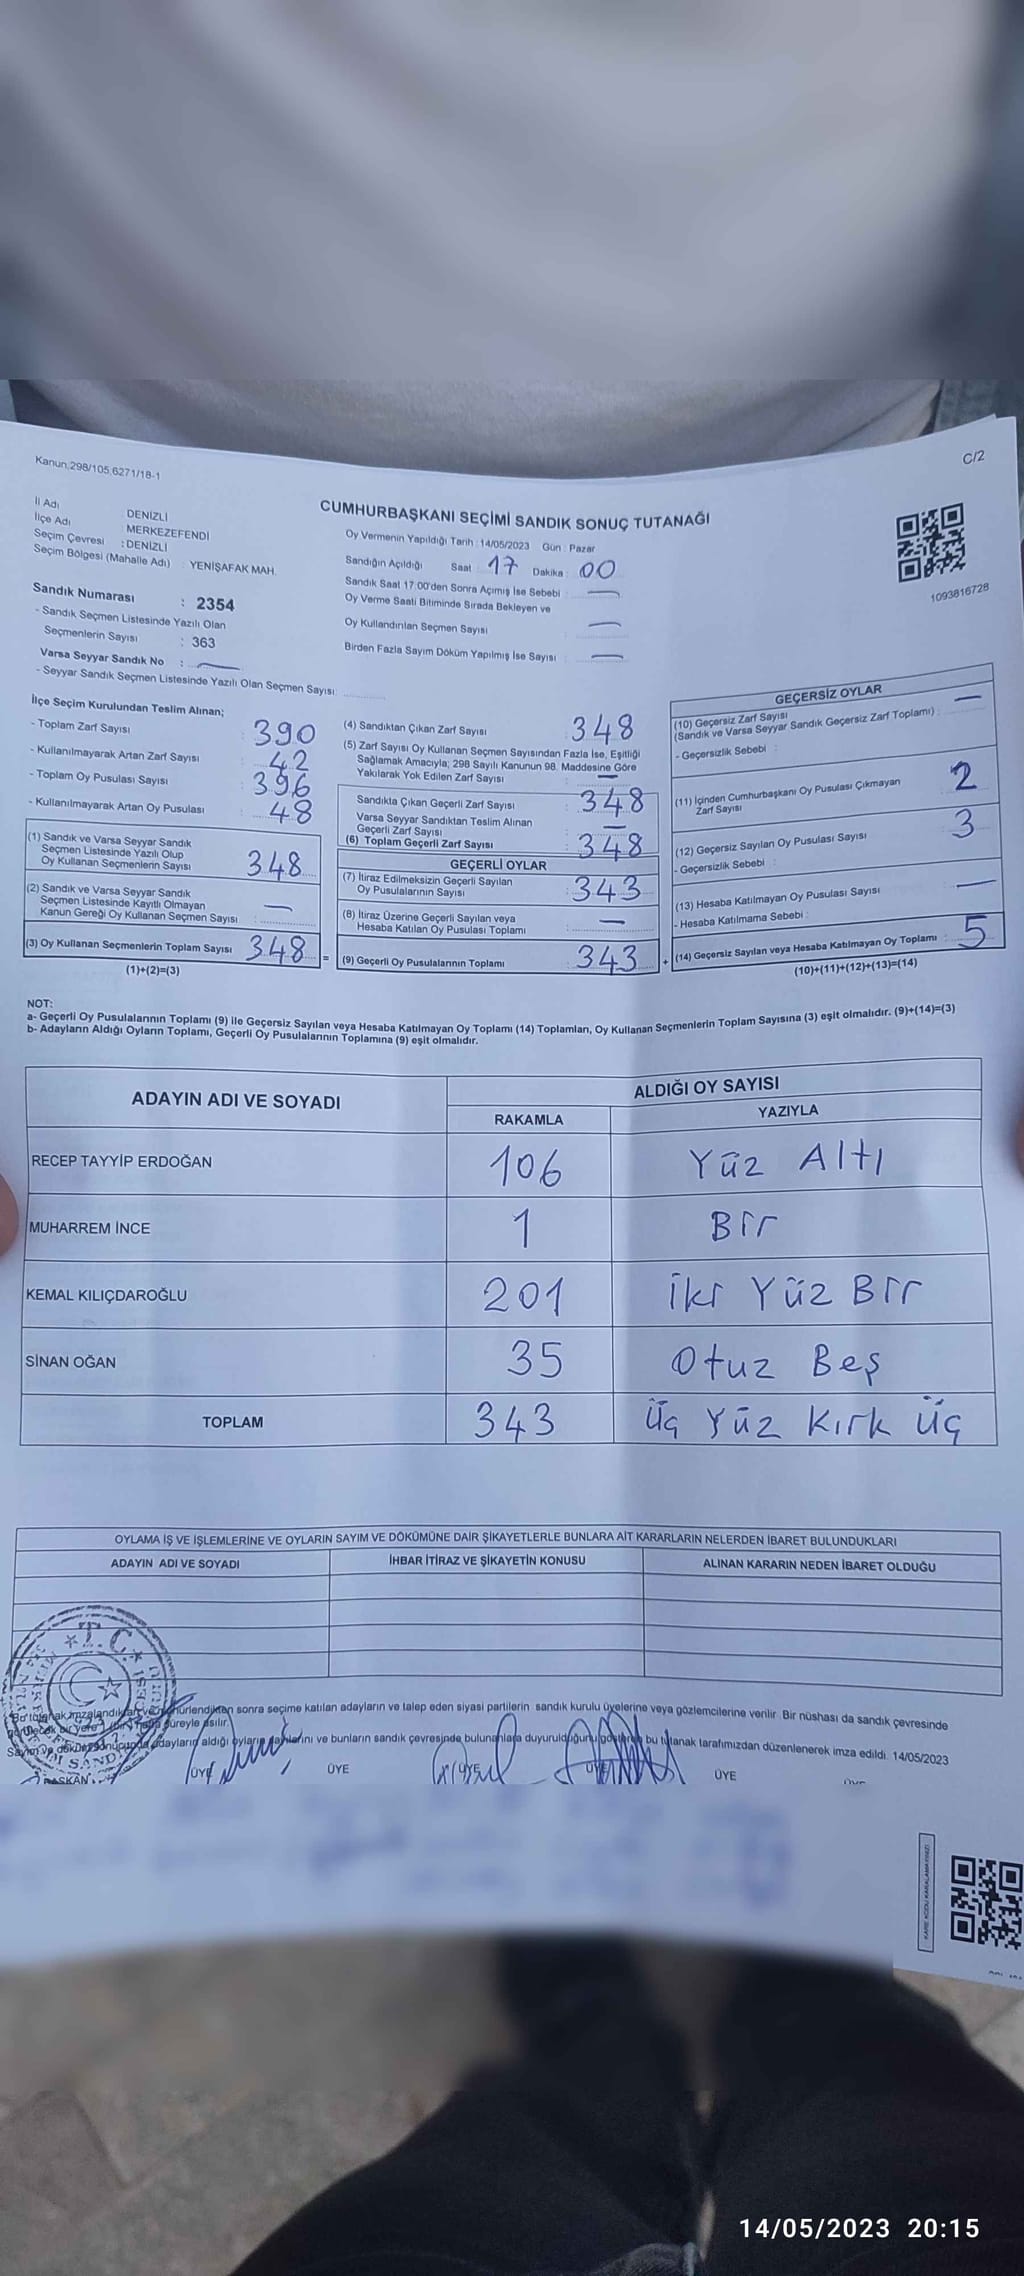 Kanun,298/105,6271/18-1
C/2
CUMHURBAŞKANI SEÇİMİ SANDIK SONUÇ TUTANAĞI
İl Adı DENİZLİ
İlçe Adı : MERKEZEFENDİ
Seçim Çevresi : DENİZLİ
Seçim Bölgesi (Mahalle Adı) : YENİŞAFAK MAH.
Oy Vermenin Yapıldığı Tarih : 14/05/2023 Gün : Pazar
Sandığın Açıldığı Saat 17 Dakika : 00
Sandık Saat 17:00'den Sonra Açımış İse Sebebi : —
Oy Verme Saati Bitiminde Sırada Bekleyen ve
Oy Kullandırılan Seçmen Sayısı —
Birden Fazla Sayım Döküm Yapılmış İse Sayısı : —
1093816728
Sandık Numarası : 2354
- Sandık Seçmen Listesinde Yazılı Olan
Seçmenlerin Sayısı : 363
Varsa Seyyar Sandık No : —
- Seyyar Sandık Seçmen Listesinde Yazılı Olan Seçmen Sayısı:
İlçe Seçim Kurulundan Teslim Alınan;
- Toplam Zarf Sayısı : 390
- Kullanılmayarak Artan Zarf Sayısı : 42
- Toplam Oy Pusulası Sayısı : 396
- Kullanılmayarak Artan Oy Pusulası : 48
(1) Sandık ve Varsa Seyyar Sandık
Seçmen Listesinde Yazılı Olup
Oy Kullanan Seçmenlerin Sayısı 348
(2) Sandık ve Varsa Seyyar Sandık
Seçmen Listesinde Kayıtlı Olmayan
Kanun Gereği Oy Kullanan Seçmen Sayısı : —
(3) Oy Kullanan Seçmenlerin Toplam Sayısı 348 =
(1)+(2)=(3)
(4) Sandıktan Çıkan Zarf Sayısı : 348
(5) Zarf Sayısı Oy Kullanan Seçmen Sayısından Fazla İse, Eşitliği
Sağlamak Amacıyla; 298 Sayılı Kanunun 98. Maddesine Göre
Yakılarak Yok Edilen Zarf Sayısı : —
Sandıkta Çıkan Geçerli Zarf Sayısı : 348
Varsa Seyyar Sandıktan Teslim Alınan
Geçerli Zarf Sayısı : —
(6) Toplam Geçerli Zarf Sayısı : 348
GEÇERLİ OYLAR
(7) İtiraz Edilmeksizin Geçerli Sayılan
Oy Pusulalarının Sayısı : 343
(8) İtiraz Üzerine Geçerli Sayılan veya
Hesaba Katılan Oy Pusulası Toplamı : —
(9) Geçerli Oy Pusulalarının Toplamı : 343 +
GEÇERSİZ OYLAR
(10) Geçersiz Zarf Sayısı
(Sandık ve Varsa Seyyar Sandık Geçersiz Zarf Toplamı) : —
- Geçersizlik Sebebi :
(11) İçinden Cumhurbaşkanı Oy Pusulası Çıkmayan
Zarf Sayısı 2
(12) Geçersiz Sayılan Oy Pusulası Sayısı 3
- Geçersizlik Sebebi :
(13) Hesaba Katılmayan Oy Pusulası Sayısı —
- Hesaba Katılmama Sebebi :
(14) Geçersiz Sayılan veya Hesaba Katılmayan Oy Toplamı : 5
(10)+(11)+(12)+(13)=(14)
NOT:
a- Geçerli Oy Pusulalarının Toplamı (9) ile Geçersiz Sayılan veya Hesaba Katılmayan Oy Toplamı (14) Toplamları, Oy Kullanan Seçmenlerin Toplam Sayısına (3) eşit olmalıdır. (9)+(14)=(3)
b- Adayların Aldığı Oyların Toplamı, Geçerli Oy Pusulalarının Toplamına (9) eşit olmalıdır.
ADAYIN ADI VE SOYADI ALDIĞI OY SAYISI
RAKAMLA YAZIYLA
RECEP TAYYİP ERDOĞAN 106 Yüz Altı
MUHARREM İNCE 1 Bir
KEMAL KILIÇDAROĞLU 201 İki Yüz Bir
SİNAN OĞAN 35 Otuz Beş
TOPLAM 343 Üç Yüz Kırk Üç
OYLAMA İŞ VE İŞLEMLERİNE VE OYLARIN SAYIM VE DÖKÜMÜNE DAİR ŞİKAYETLERLE BUNLARA AİT KARARLARIN NELERDEN İBARET BULUNDUKLARI
ADAYIN ADI VE SOYADI İHBAR İTİRAZ VE ŞİKAYETİN KONUSU ALINAN KARARIN NEDEN İBARET OLDUĞU
T.C.
sonra seçime katılan adayların ve talep eden siyasi partilerin sandık kurulu üyelerine veya gözlemcilerine verilir. Bir nüshası da sandık çevresinde
süreyle asılır.
adayların aldığı oyların ve bunların sandık çevresinde bulunanlara duyurulduğunu gösteren bu tutanak tarafımızdan düzenlenerek imza edildi. 14/05/2023
BAŞKAN ÜYE ÜYE ÜYE ÜYE ÜYE
14/05/2023 20:15